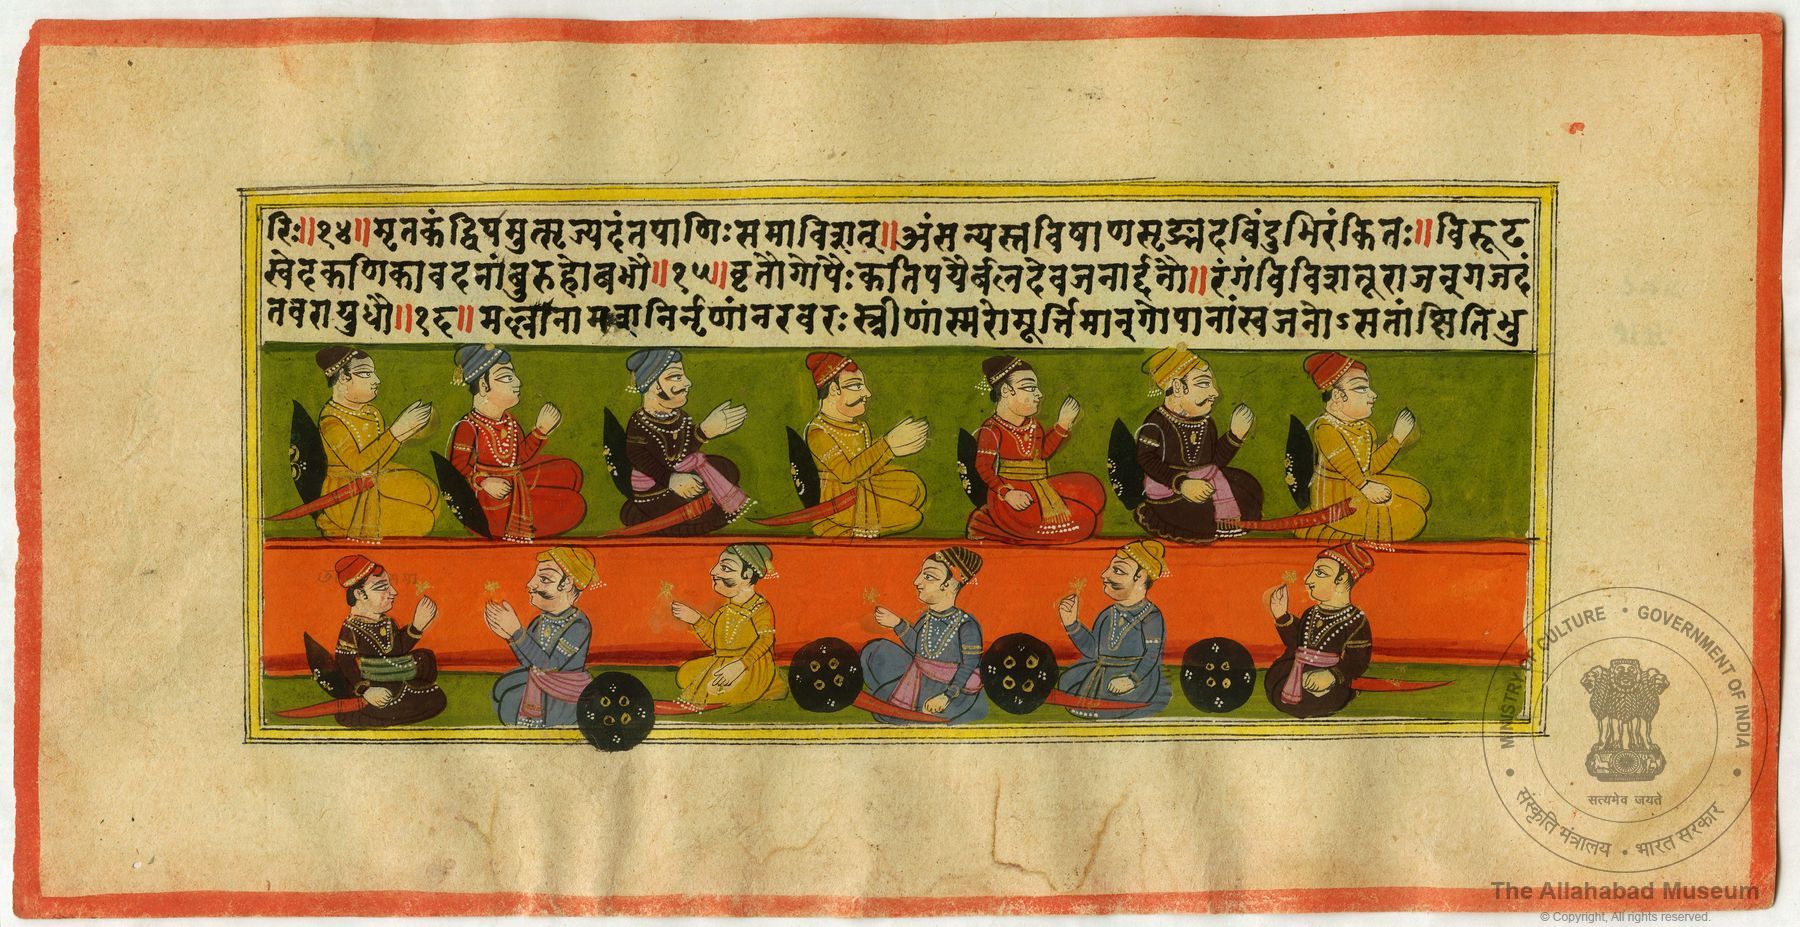 रिः॥१४॥मृतकंद्विपमुत्सृज्यदंतपाणिःसमाविशत्॥अंसन्यस्तविषाणसृङ्मदबिंदुभिरंकितः॥विरूढ
स्वेदकणिकावदनांबुरुहोबभौ॥१५॥वृतौगोपैःकतिपयैर्बलदेवजनार्द्दनौ॥रंगंविविशतूराजन्गजदं
तवरायुधौ॥१६॥मल्लानामशनिर्नृणांनरवरःस्त्रीणांस्मरोमूर्त्तिमान्गोपानांस्वजनोऽसतांक्षितिभु
MINISTRY OF CULTURE • GOVERNMENT OF INDIA
सत्यमेव जयते
संस्कृति मंत्रालय • भारत सरकार
The Allahabad Museum
© Copyright, All rights reserved.